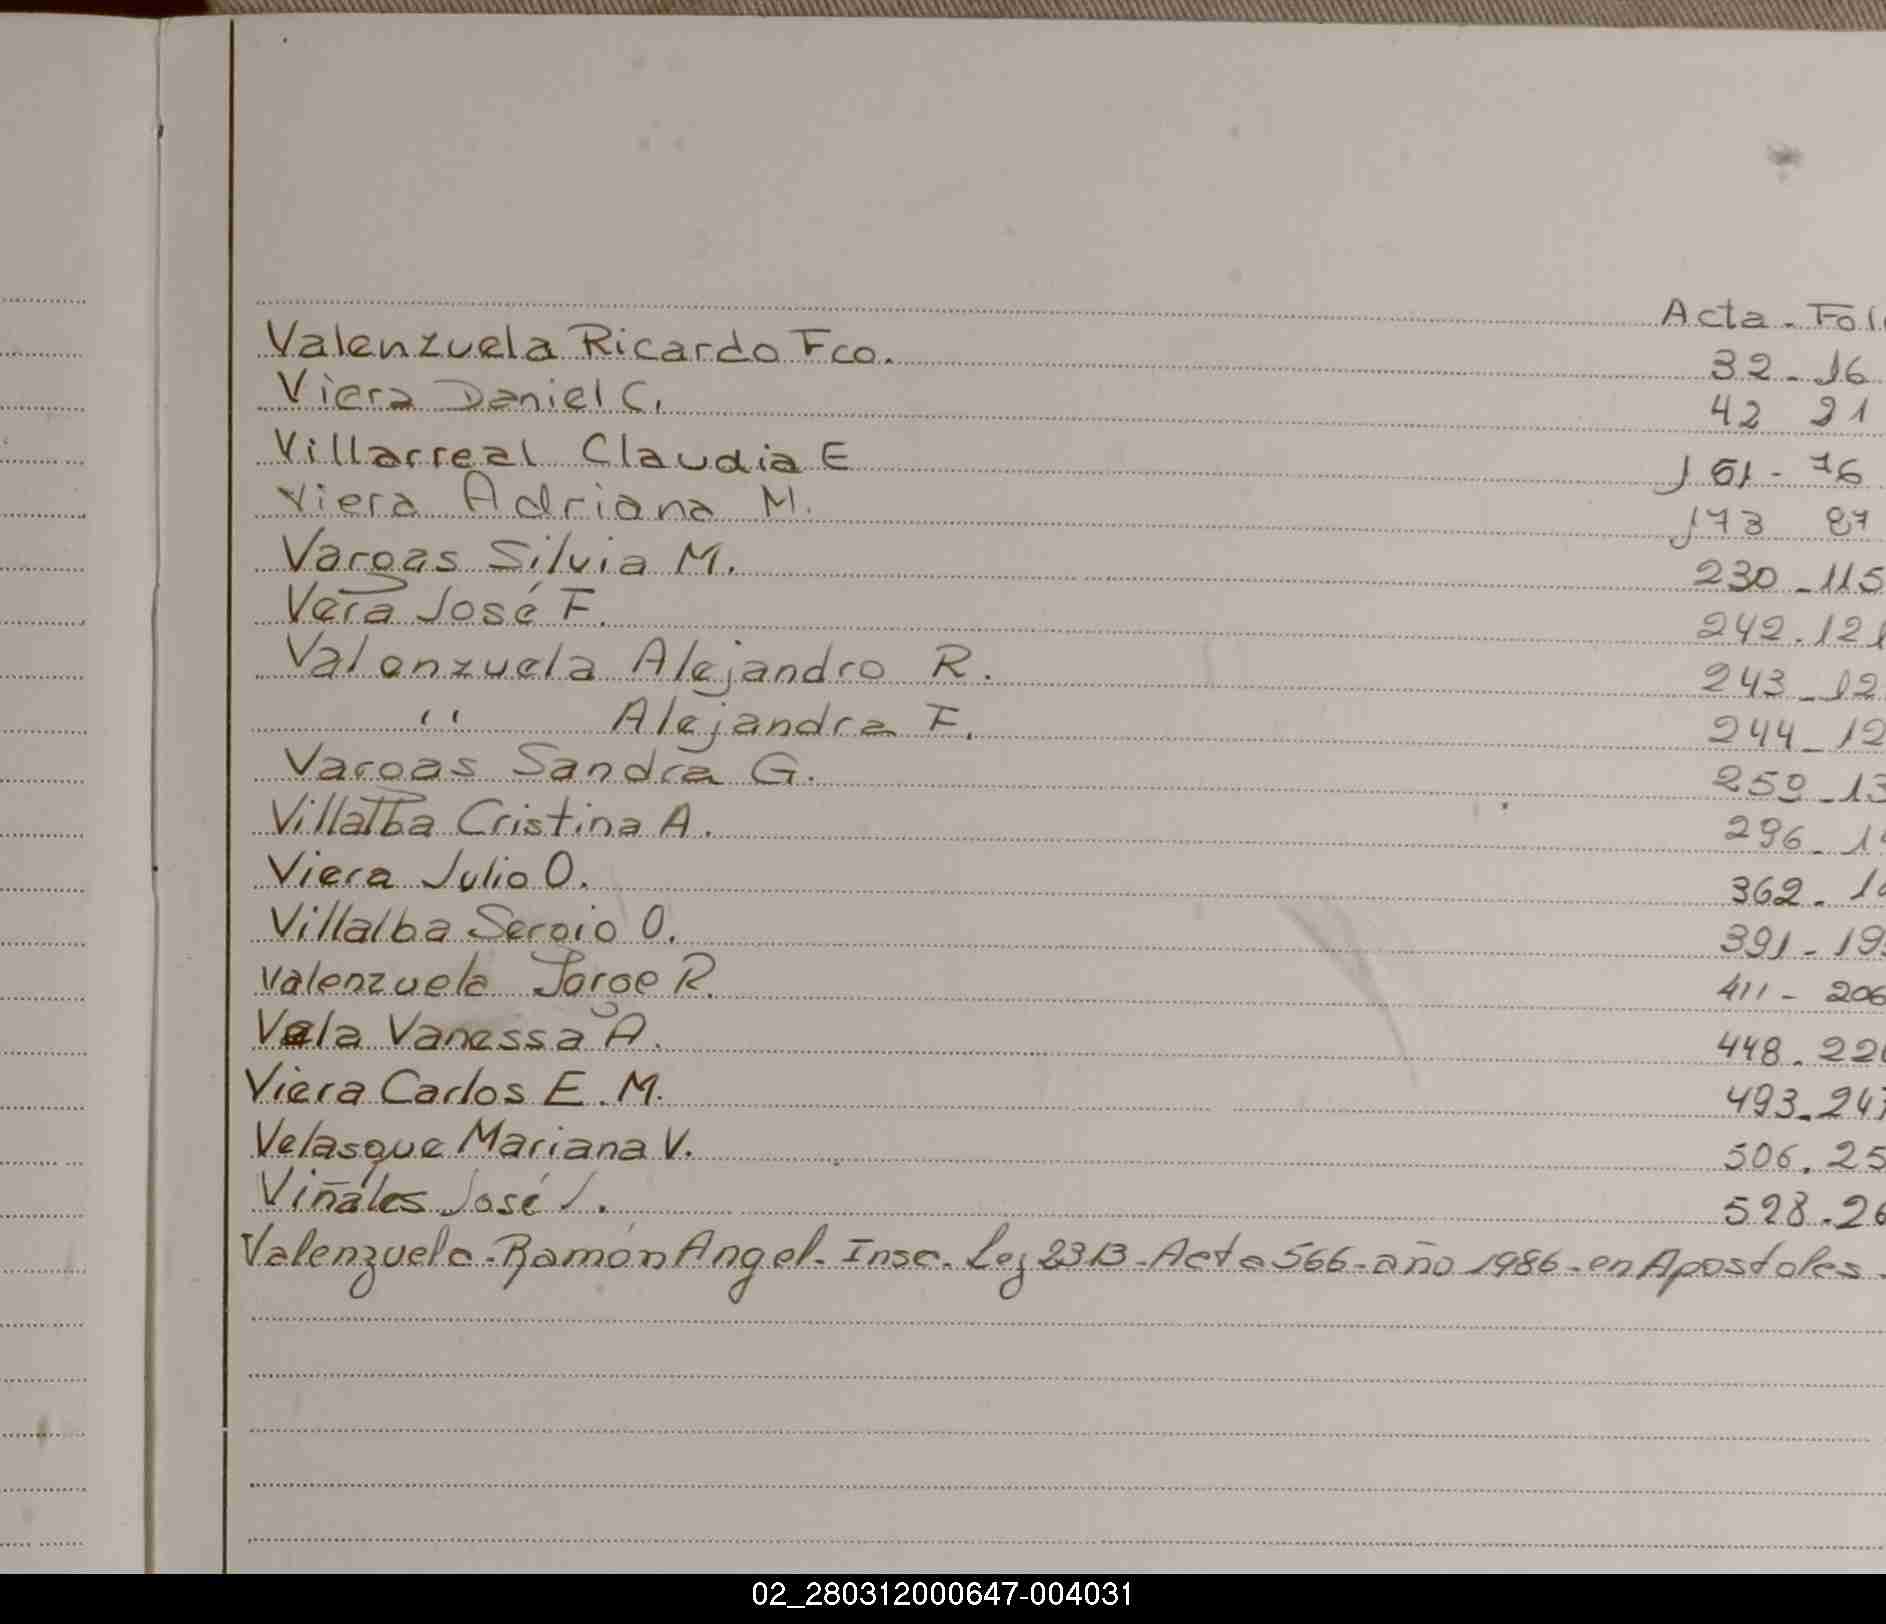 Acta - Fol
Valenzuela Ricardo Fco. 32 - 16
Viera Daniel C. 42 21
Villarreal Claudia E 151 - 76
Viera Adriana M. 173 87
Vargas Silvia M. 230 - 115
Vera José F. 242 - 121
Valenzuela Alejandro R. 243 - 12
" Alejandra F. 244 - 12
Vargas Sandra G. 259 - 13
Villalba Cristina A. 296 - 14
Viera Julio O. 362 - 1
Villalba Sergio O. 391 - 19
Valenzuela Jorge R. 411 - 206
Vela Vanessa A. 448 - 22
Viera Carlos E. M. 493 - 247
Velasque Mariana V. 506 . 25
Viñales José 528 - 26
Valenzuela - Ramón Angel - Insc. Ley 2313 - Acta 566 - año 1986 - en Apostoles -
02_280312000647-004031